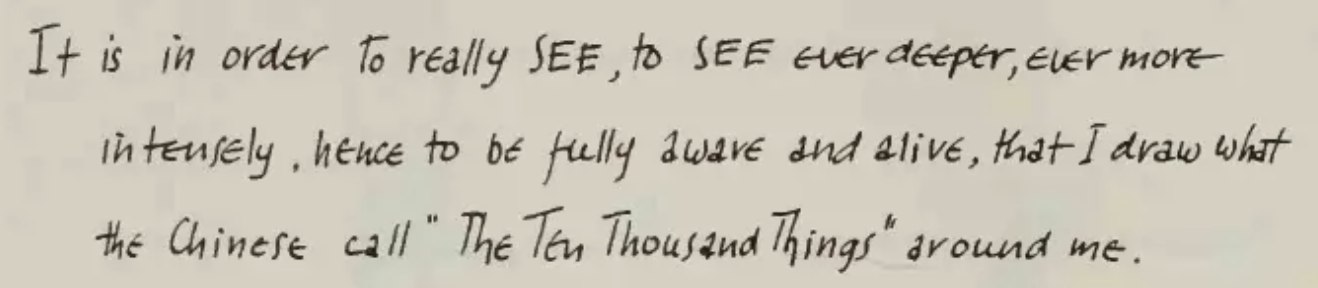 It is in order to really SEE, to SEE ever deeper, ever more
intensely, hence to be fully aware and alive, that I draw what
the Chinese call "The Ten Thousand Things" around me.